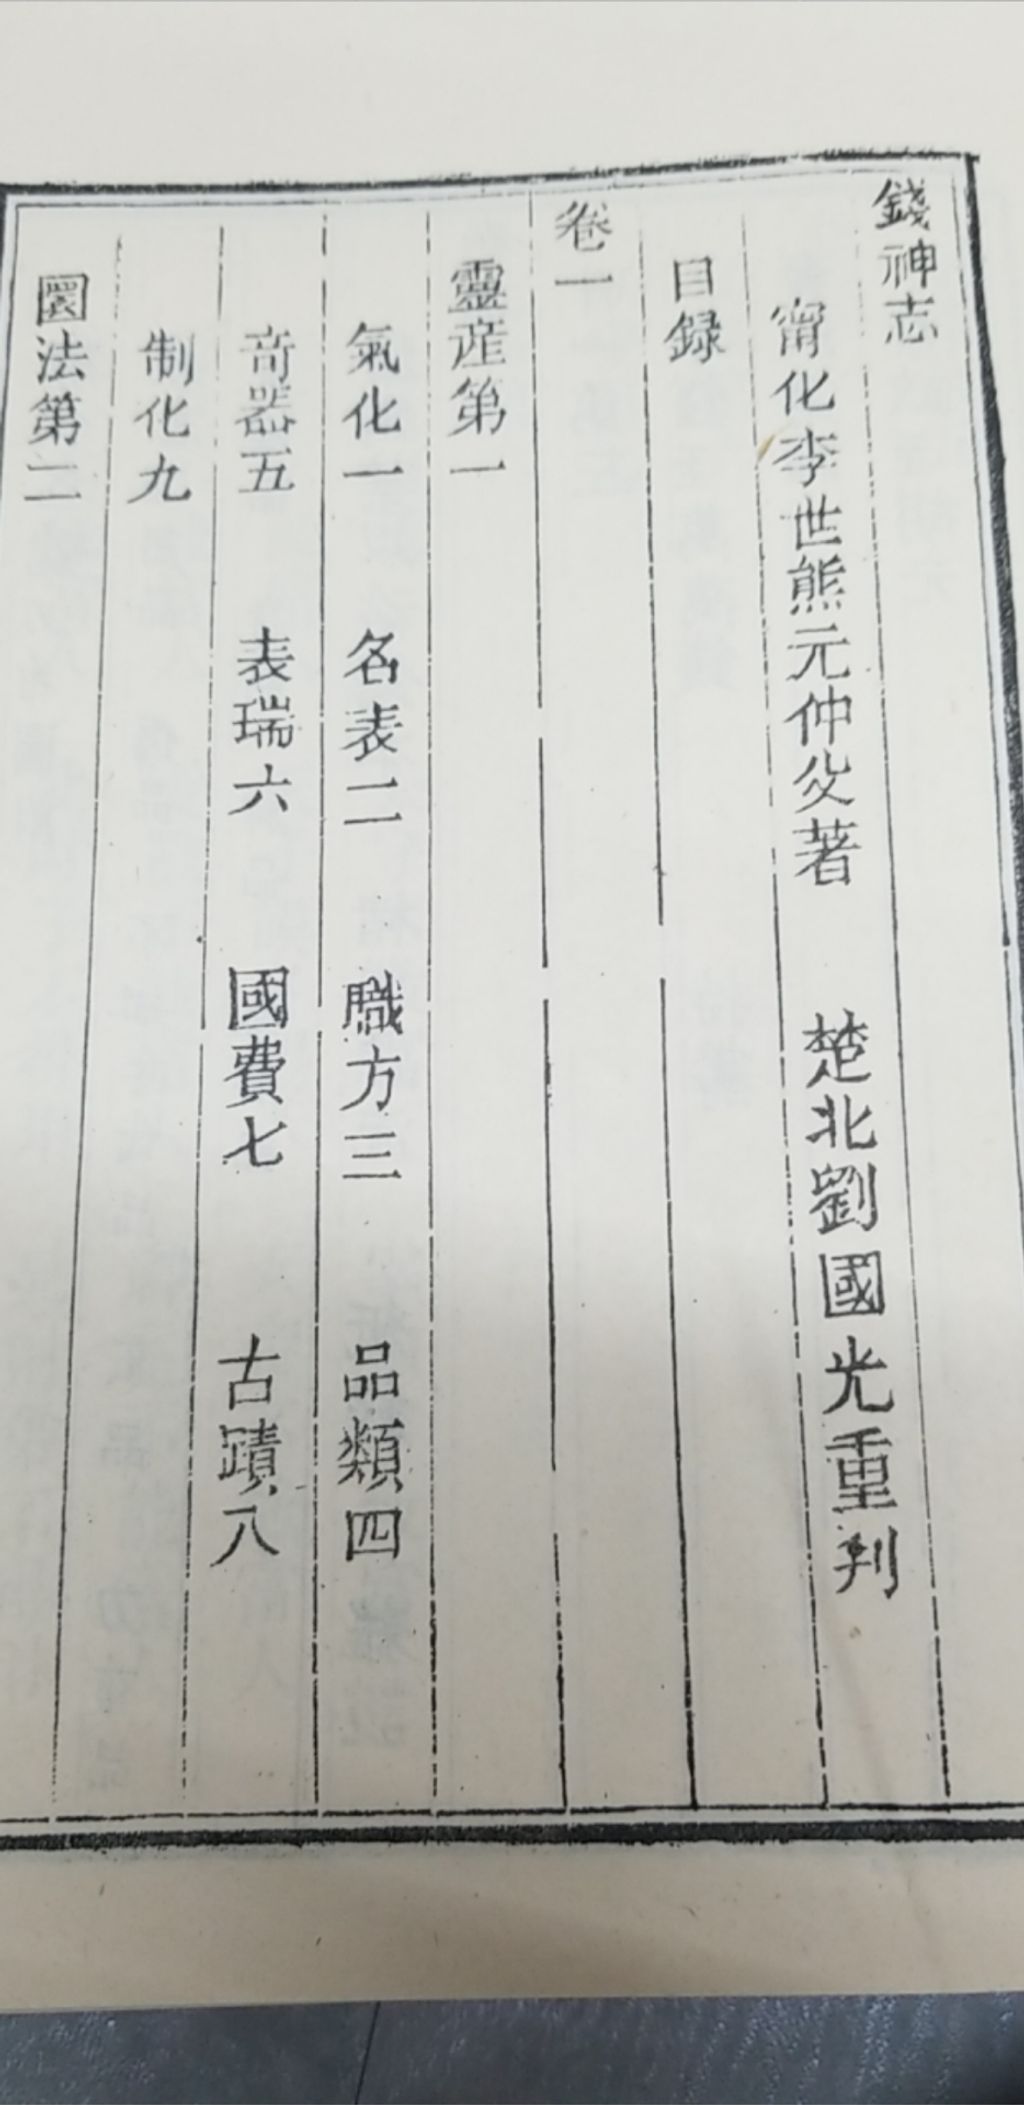 錢神志
甯化李世熊元仲父著　楚北劉國光重刋
目録
卷一
靈産第一
氣化一　名表二　職方三　品類四
奇器五　表瑞六　國費七　古蹟八
制化九
圜法第二